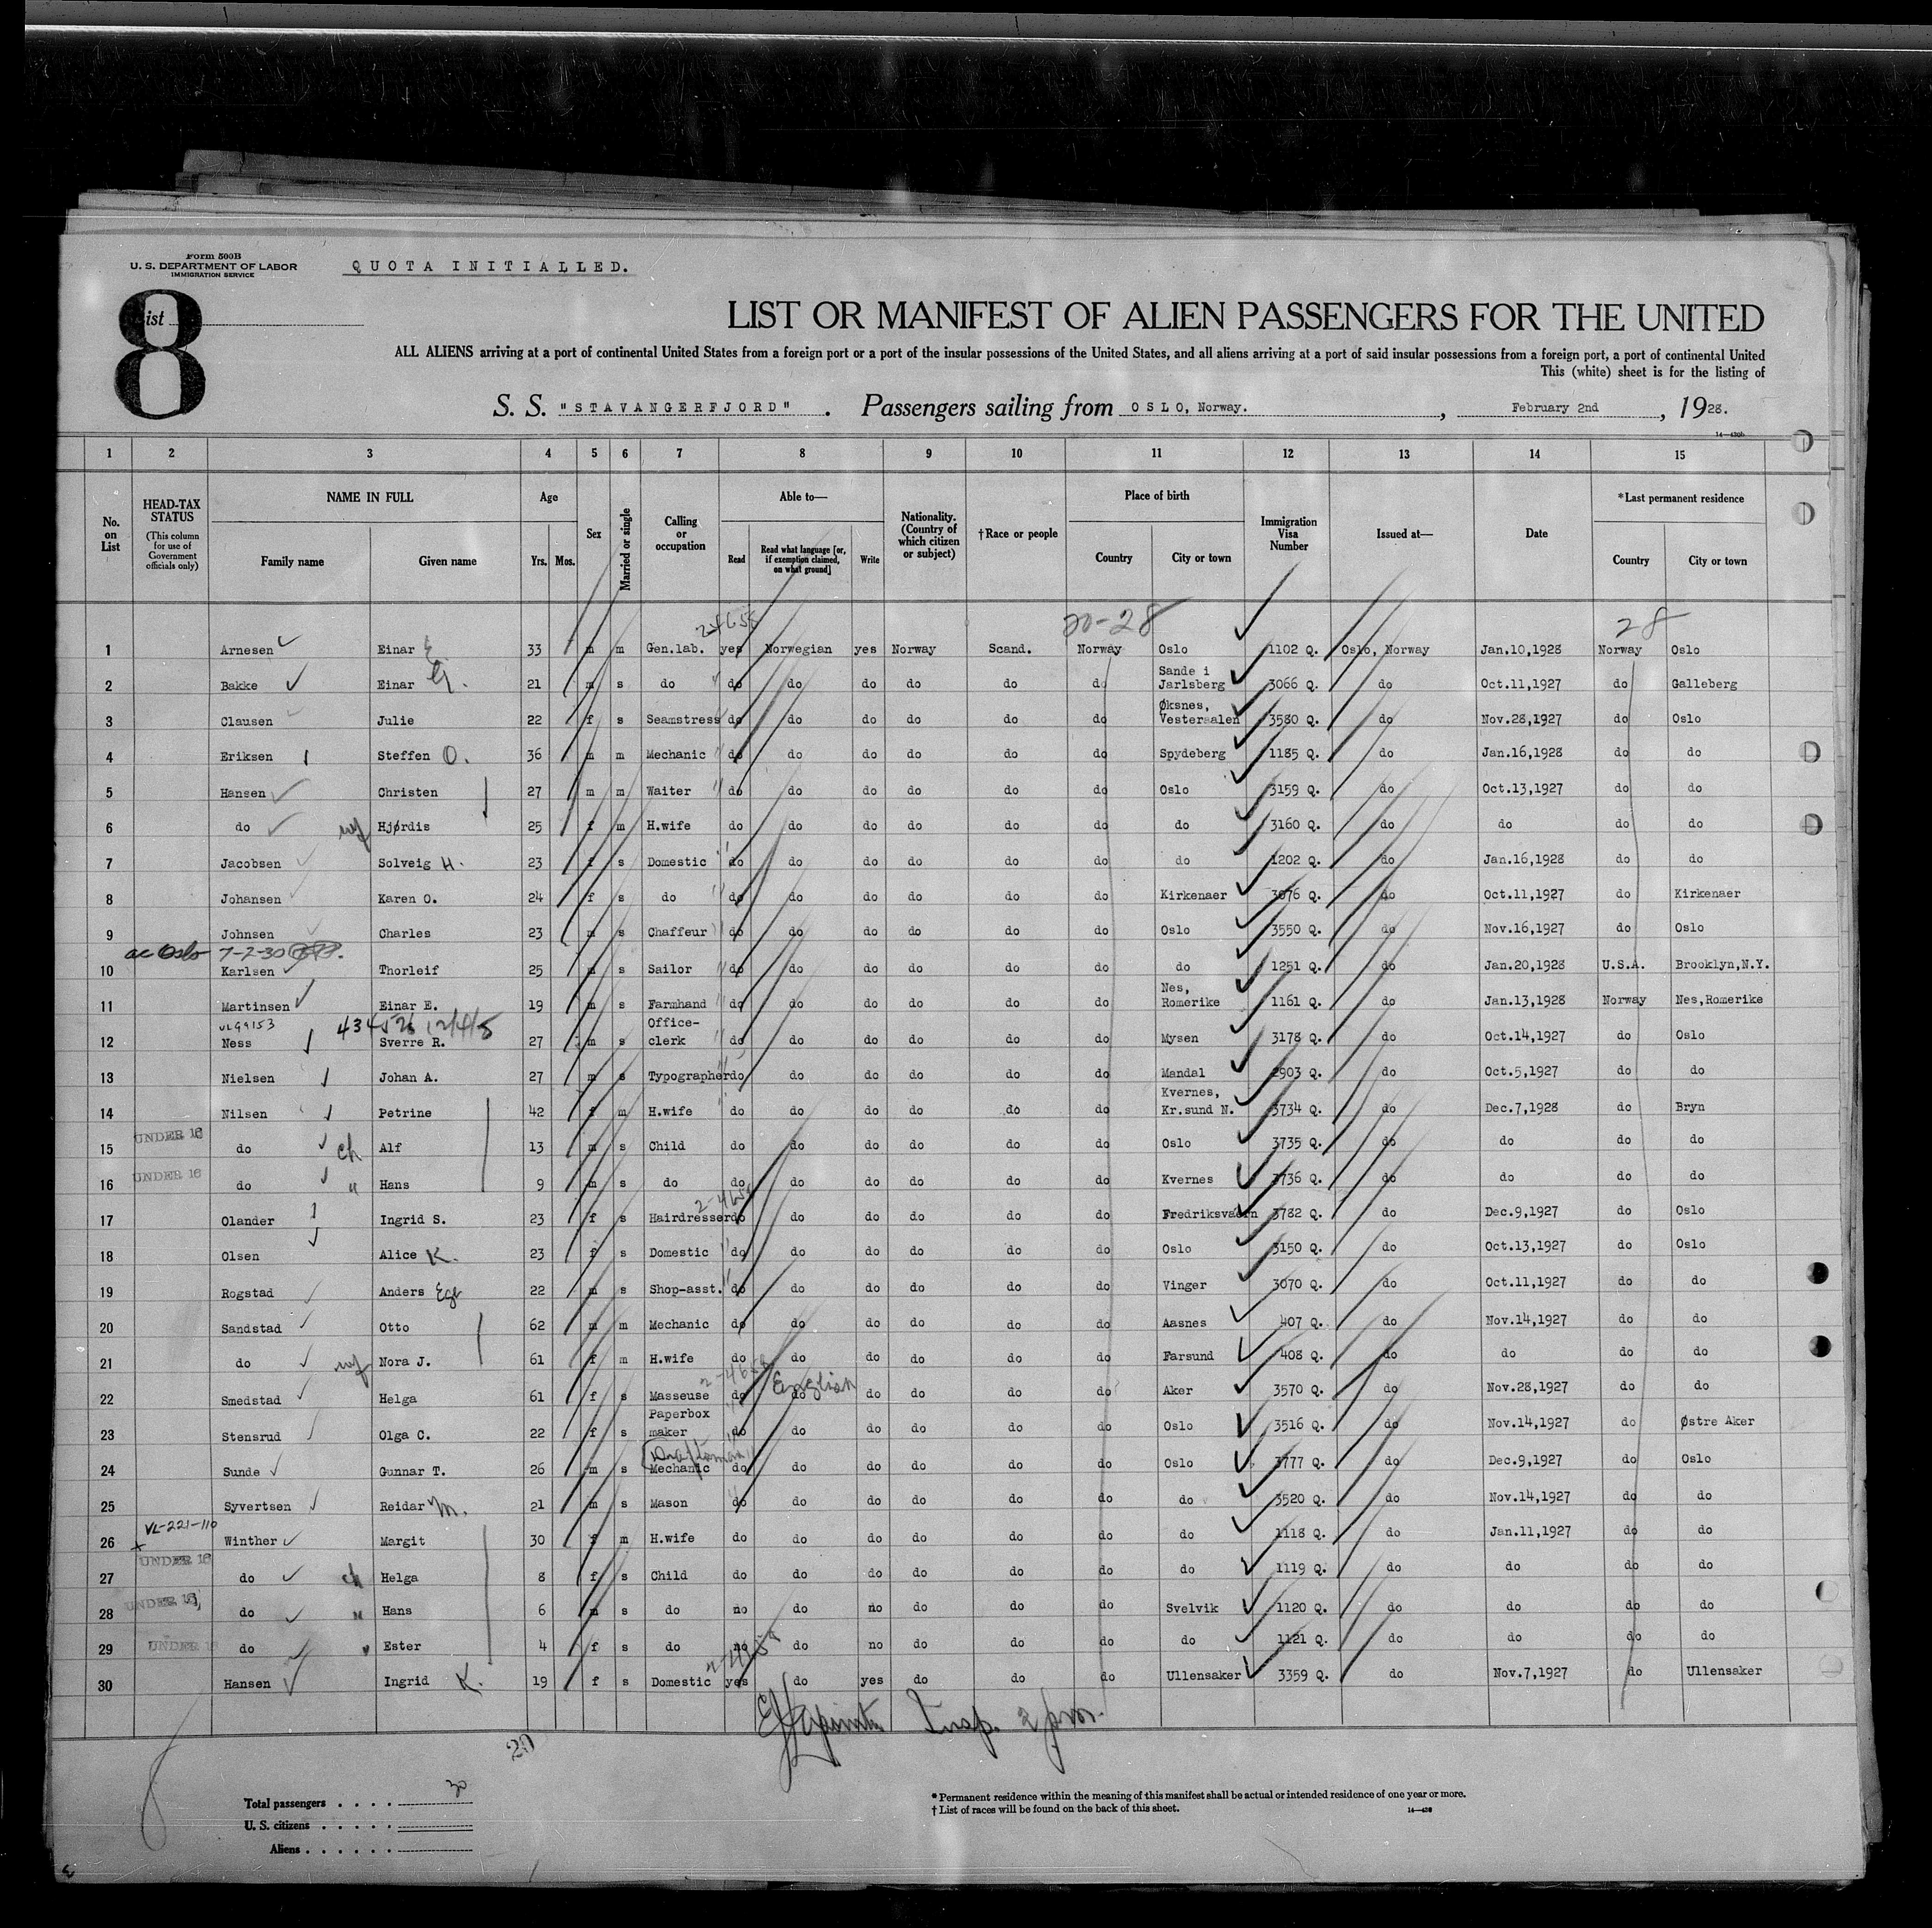 Form 500B
U. S. DEPARTMENT OF LABOR
IMMIGRATION SERVICE
QUOTA INITIALLED.
8
List
LIST OR MANIFEST OF ALIEN PASSENGERS FOR THE UNITED
ALL ALIENS arriving at a port of continental United States from a foreign port or a port of the insular possessions of the United States, and all aliens arriving at a port of said insular possessions from a foreign port, a port of continental United
This (white) sheet is for the listing of
S. S. "STAVANGERFJORD". Passengers sailing from OSLO, Norway. , February 2nd , 1928.
1 2 3 4 5 6 7 8 9 10 11 12 13 14 15
No. on List
HEAD-TAX STATUS
(This column for use of Government officials only)
NAME IN FULL
Family name Given name
Age
Yrs. Mos.
Sex
Married or single
Calling or occupation
Able to—
Read
Read what language [or, if exemption claimed, on what ground]
Write
Nationality. (Country of which citizen or subject)
†Race or people
Place of birth
Country City or town
Immigration Visa Number
Issued at—
Date
*Last permanent residence
Country City or town
20-28 28
1 Arnesen Einar E. 33 m m Gen.lab. yes Norwegian yes Norway Scand. Norway Oslo 1102 Q. Oslo, Norway Jan.10,1928 Norway Oslo
2 Bakke Einar G. 21 m s do do do do do do do Sande i Jarlsberg 3066 Q. do Oct.11,1927 do Galleberg
3 Clausen Julie 22 f s Seamstress do do do do do do Øksnes, Vesteraalen 3580 Q. do Nov.28,1927 do Oslo
4 Eriksen Steffen O. 36 m m Mechanic do do do do do do Spydeberg 1185 Q. do Jan.16,1928 do do
5 Hansen Christen 27 m m Waiter do do do do do do Oslo 3159 Q. do Oct.13,1927 do do
6 do wf Hjørdis 25 f m H.wife do do do do do do do 3160 Q. do do do do
7 Jacobsen Solveig H. 23 f s Domestic do do do do do do do 1202 Q. do Jan.16,1928 do do
8 Johansen Karen O. 24 f s do do do do do do do Kirkenaer 3076 Q. do Oct.11,1927 do Kirkenaer
9 Johnsen Charles 23 m s Chaffeur do do do do do do Oslo 3550 Q. do Nov.16,1927 do Oslo
ac Oslo 7-2-30
10 Karlsen Thorleif 25 m s Sailor do do do do do do do 1251 Q. do Jan.20,1928 U.S.A. Brooklyn,N.Y.
11 Martinsen Einar E. 19 m s Farmhand do do do do do do Nes, Romerike 1161 Q. do Jan.13,1928 Norway Nes,Romerike
12 Ness Sverre R. 27 m s Office-clerk do do do do do do Mysen 3178 Q. do Oct.14,1927 do Oslo
13 Nielsen Johan A. 27 m s Typographer do do do do do do Mandal 2903 Q. do Oct.5,1927 do do
14 Nilsen Petrine 42 f m H.wife do do do do do do Kvernes, Kr.sund N. 3734 Q. do Dec.7,1928 do Bryn
15 UNDER 16 do ch Alf 13 m s Child do do do do do do Oslo 3735 Q. do do do do
16 UNDER 16 do " Hans 9 m s do do do do do do do Kvernes 3736 Q. do do do do
17 Olander Ingrid S. 23 f s Hairdresser do do do do do do Fredriksværn 3782 Q. do Dec.9,1927 do Oslo
18 Olsen Alice K. 23 f s Domestic do do do do do do Oslo 3150 Q. do Oct.13,1927 do Oslo
19 Rogstad Anders 22 m s Shop-asst. do do do do do do Vinger 3070 Q. do Oct.11,1927 do do
20 Sandstad Otto 62 m m Mechanic do do do do do do Aasnes 407 Q. do Nov.14,1927 do do
21 do wf Nora J. 61 f m H.wife do do do do do do Farsund 408 Q. do do do do
22 Smedstad Helga 61 f s Masseuse do do English do do do do Aker 3570 Q. do Nov.28,1927 do do
23 Stensrud Olga C. 22 f s Paperbox maker do do do do do do Oslo 3516 Q. do Nov.14,1927 do Østre Aker
24 Sunde Gunnar T. 26 m s Draftsman Mechanic do do do do do do Oslo 3777 Q. do Dec.9,1927 do Oslo
25 Syvertsen Reidar M. 21 m s Mason do do do do do do do 3520 Q. do Nov.14,1927 do do
VL-221-110
26 Winther Margit 30 f m H.wife do do do do do do do 1118 Q. do Jan.11,1927 do do
27 UNDER 16 do ch Helga 8 f s Child do do do do do do do 1119 Q. do do do do
28 UNDER 16 do " Hans 6 m s do no do no do do do Svelvik 1120 Q. do do do do
29 UNDER 16 do " Ester 4 f s do no do no do do do do 1121 Q. do do do do
30 Hansen Ingrid K. 19 f s Domestic yes do yes do do do Ullensaker 3359 Q. do Nov.7,1927 do Ullensaker
Insp.
Total passengers 30
U. S. citizens
Aliens
* Permanent residence within the meaning of this manifest shall be actual or intended residence of one year or more.
† List of races will be found on the back of this sheet.